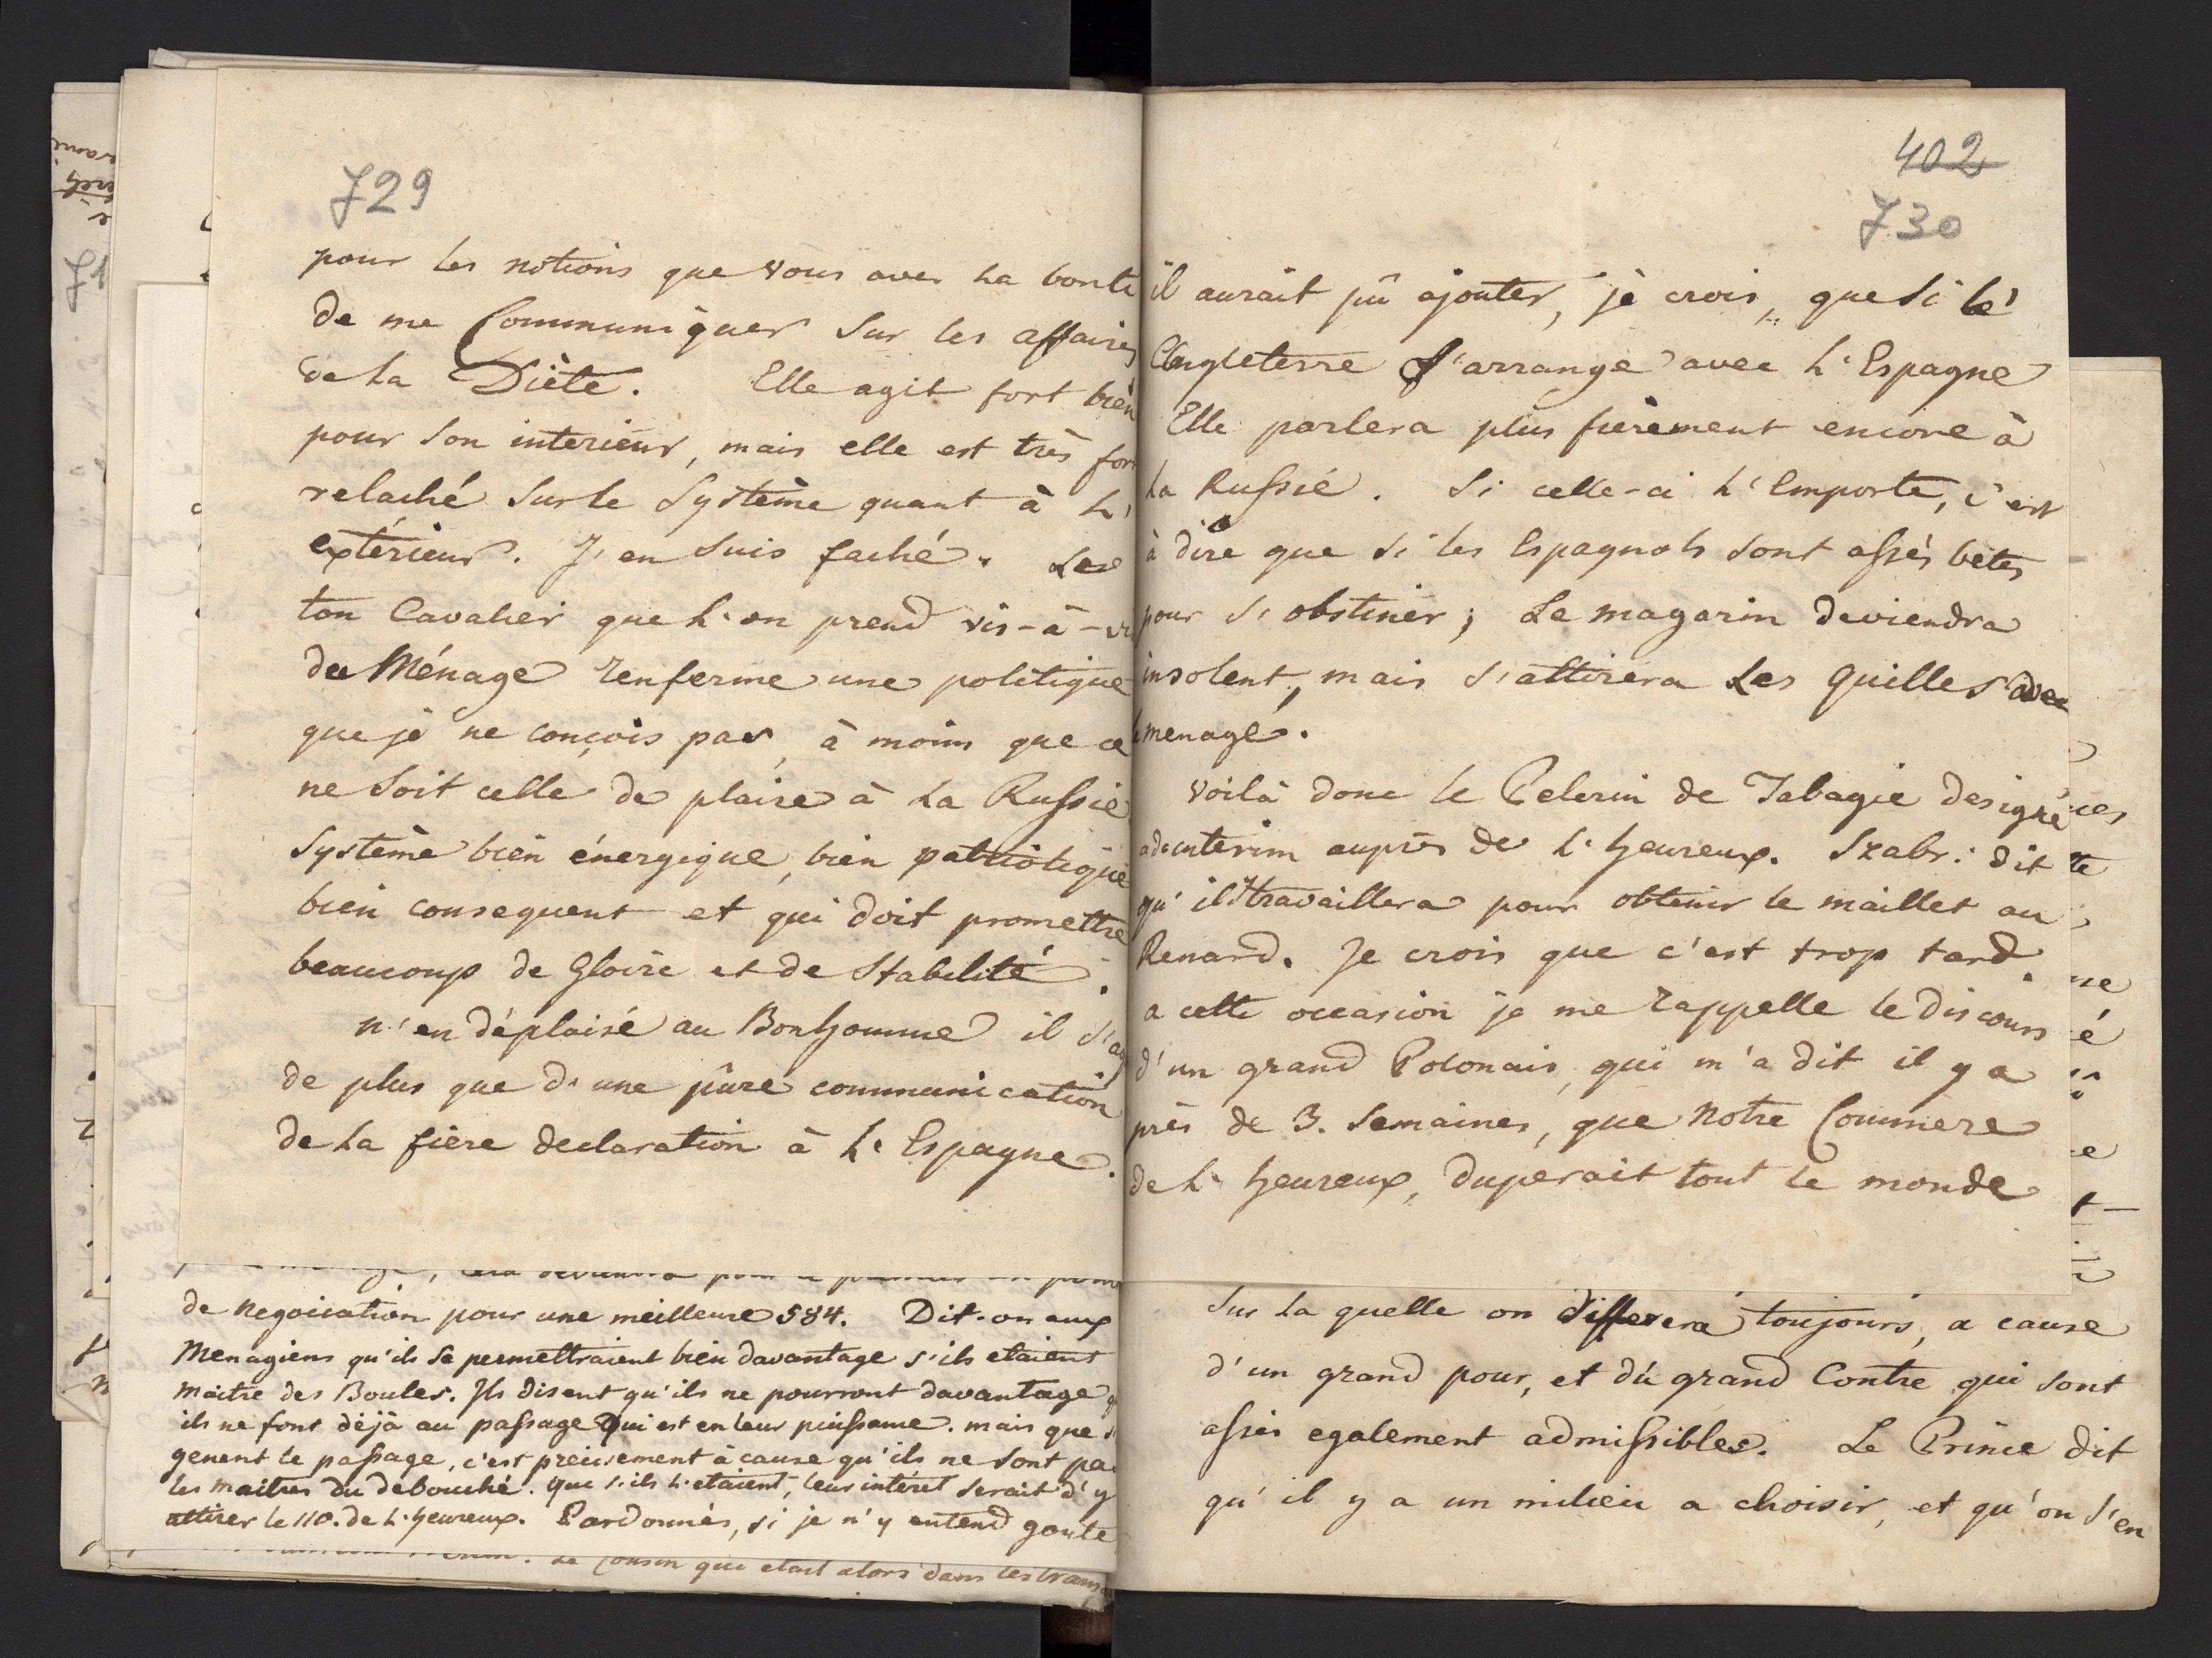 729
pour les notions que vous aves la bonté
de me Communiquer sur les affaires
de la Diète. Elle agit fort bien
pour son interieur, mais elle est très fort
relaché sur le Système quant à l'
extérieur. J'en suis faché. Le
ton Cavalier que l'on prend vis-à-vis
du Ménage renferme une politique
que je ne conçois pas, à moins que ce
ne soit celle de plaire à la Russie
Système bien énergique, bien patriotique
bien consequent et qui doit promettre
beaucoup de Gloire et de Stabilité.
n'en déplaise au Bonhomme il s'agit
de plus que d'une pûre communication
de la fière declaration à l'Espagne.
de negociation pour une meilleure 584. Dit-on aux
Menagiens qu'ils se permettraient bien davantage s'ils etaient
maitre des Boules. Ils disent qu'ils ne pourront davantage
ils ne font déjà au passage qui est en leur puissance. mais que
genent le passage, c'est precisement à cause qu'ils ne sont pas
les maitres du debouché. que s'ils l'etaient, leur intéret serait d'y
attirer le 110. de l'heureux. Pardonnés, si je n'y entend goute
Le Cousin qui etait alors dans les
402
730
il aurait pû ajouter, je crois, que si l'
Angleterre s'arrange avec l'Espagne
Elle parlera plus fièrement encore à
la Russie. Si celle-ci l'emporte, c'est
à dire que si les Espagnols sont assés bêtes
pour s'obstiner; Le magazin deviendra
insolent, mais s'attirera les quilles avec
menage.
Voilà donc le Pelerin de Tabagie designé
ad interim auprès de l'heureux. Szabr: dit
qu'il travaillera pour obtenir le maillet au
Renard. Je crois que c'est trop tard.
a cette occasion je me rappelle le discours
d'un grand Polonais, qui m'a dit il y a
près de 3. Semaines, que notre Commere
de l'heureux, duperait tout le monde
sur la quelle on differera toujours, a cause
d'un grand pour, et dû grand Contre qui sont
assés egalement admissibles. Le Prince dit
qu'il y a un milieu a choisir, et qu'on s'en